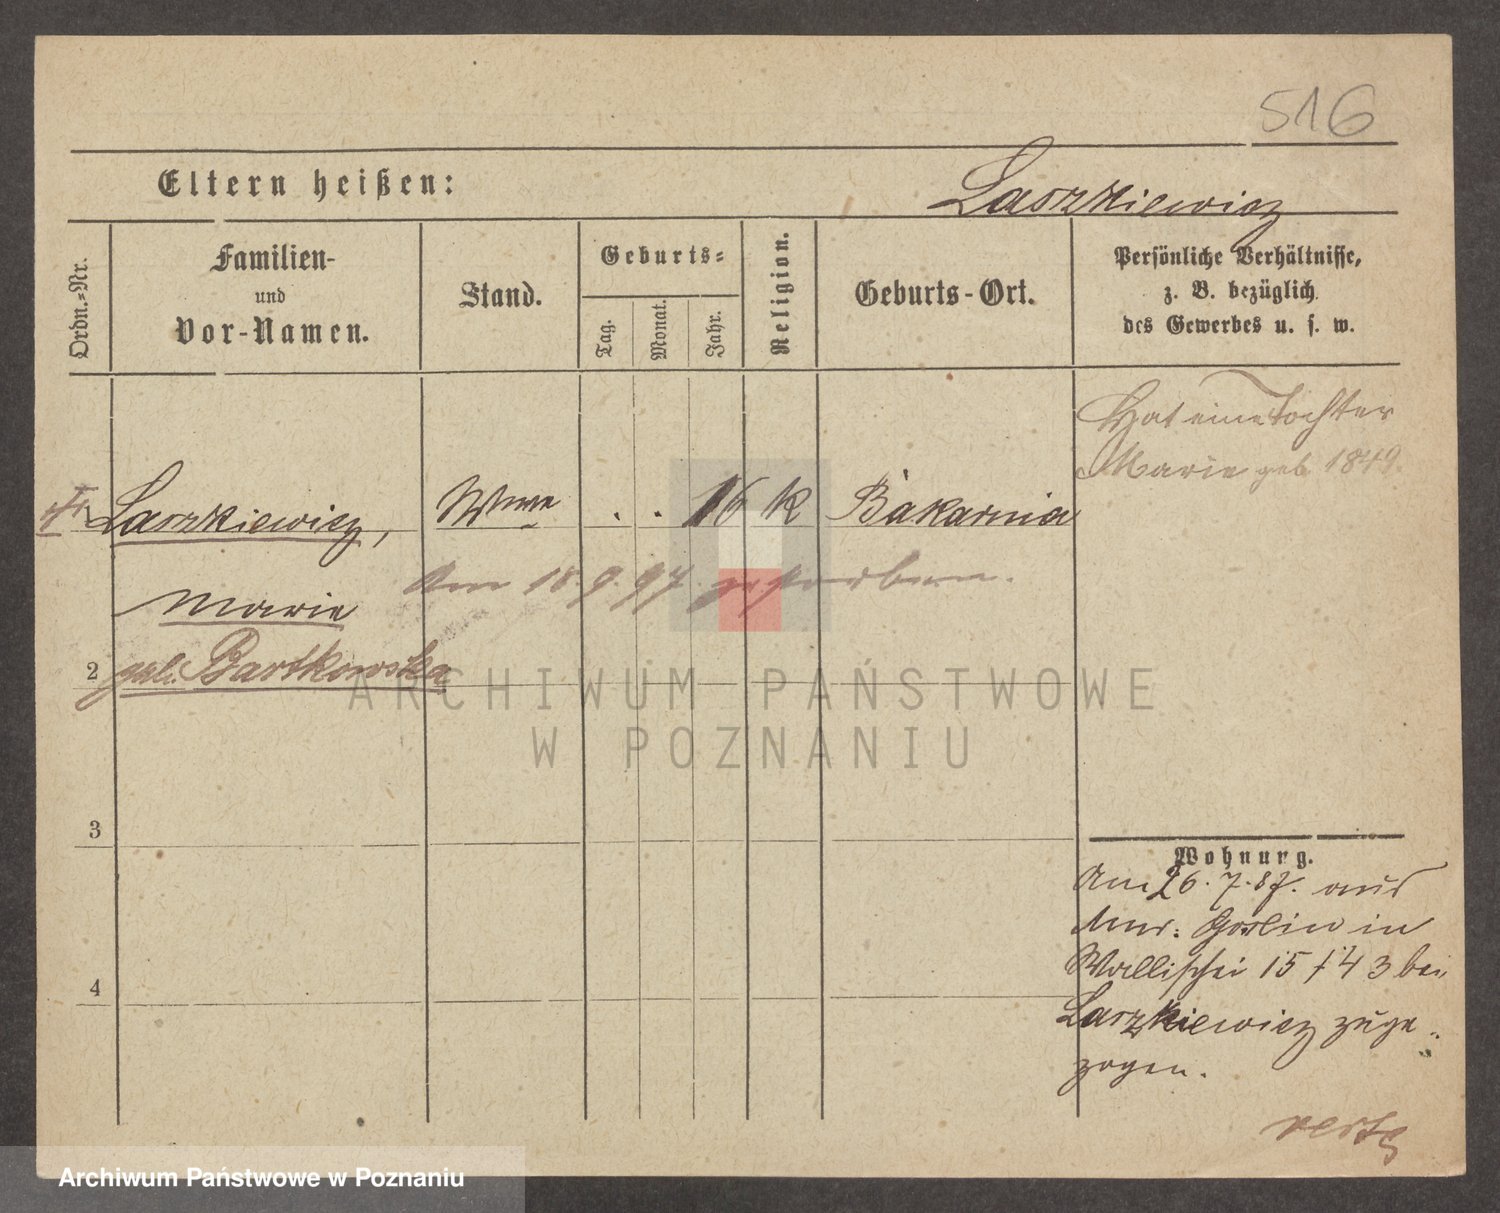 516
Eltern heißen:
Laszkiewicz
Ordn.=Nr.
Familien-
und
Vor-Namen.
Stand.
Geburts=
Tag.
Monat.
Jahr.
Religion.
Geburts-Ort.
Persönliche Verhältnisse,
z. B. bezüglich
des Gewerbes u. s. w.
Hat eine Tochter
Marie geb 1849.
Laszkiewicz,
Wwe
. . 16 k Bakarnia
Am 18.9.97 gestorben.
Marie
2 geb. Bartkowska
3
Wohnung.
Am 26.7.87. aus
Mur. Goslin in
Wallischei 15/43 bei
4
Laszkiewicz zuge-
zogen.
verte
ARCHIWUM PAŃSTWOWE
W POZNANIU
Archiwum Państwowe w Poznaniu